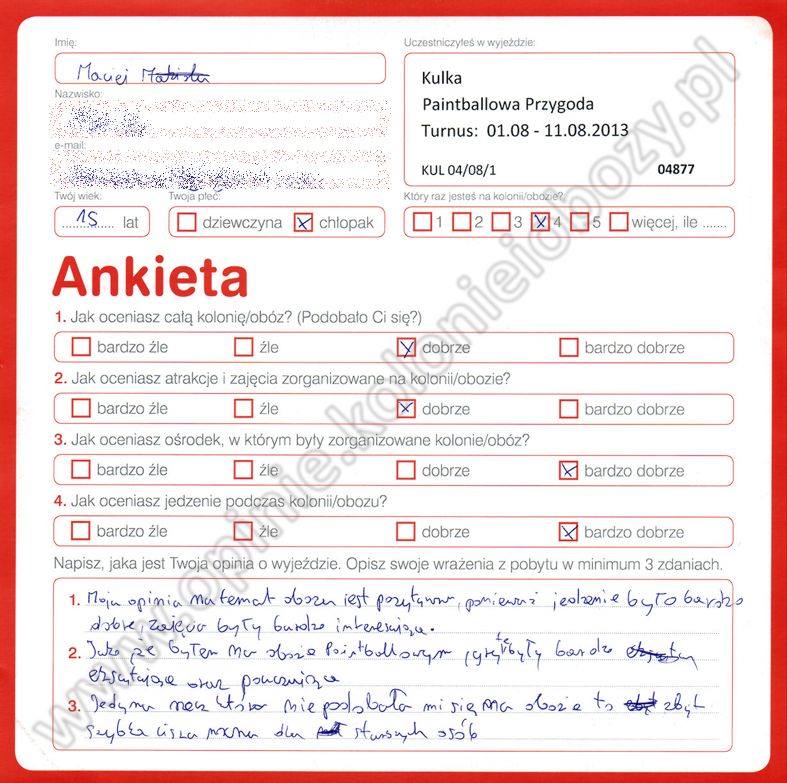 Imię:
Maciej
Uczestniczyłeś w wyjeździe:
Kulka
Paintballowa Przygoda
Turnus: 01.08 - 11.08.2013
KUL 04/08/1 04877
Nazwisko:
e-mail:
Twój wiek:
15 lat
Twoja płeć:
dziewczyna chłopak
Który raz jesteś na kolonii/obozie?
1 2 3 4 5 więcej, ile .......
Ankieta
1. Jak oceniasz całą kolonię/obóz? (Podobało Ci się?)
bardzo źle źle dobrze bardzo dobrze
2. Jak oceniasz atrakcje i zajęcia zorganizowane na kolonii/obozie?
bardzo źle źle dobrze bardzo dobrze
3. Jak oceniasz ośrodek, w którym były zorganizowane kolonie/obóz?
bardzo źle źle dobrze bardzo dobrze
4. Jak oceniasz jedzenie podczas kolonii/obozu?
bardzo źle źle dobrze bardzo dobrze
Napisz, jaka jest Twoja opinia o wyjeździe. Opisz swoje wrażenia z pobytu w minimum 3 zdaniach.
1. Moja opinia na temat obozu jest pozytywna, ponieważ jedzenie było bardzo
dobre, zajęcia były bardzo interesujące.
2. Jako że byłem na obozie Paintballowym, gry te były bardzo
ekscytujące oraz pouczające
3. Jedyna rzecz która nie podobała mi się na obozie to zbyt
szybka cisza nocna dla starszych osób
www.opinie.kolonieiobozy.pl